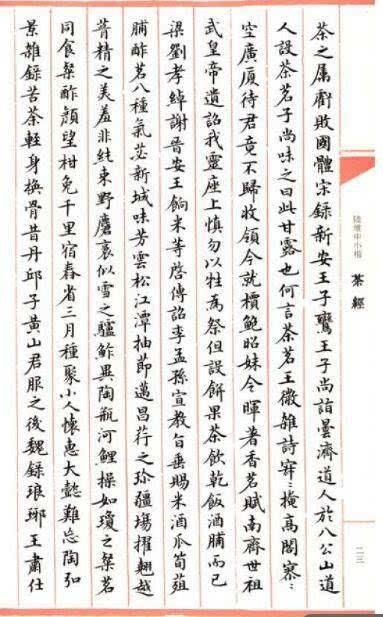 陸維中小楷
茶經
二三
茶之属虧敗國體宗録新安王子鸞王子尚詣曇濟道人於八公山道
人設茶茗子尚味之曰此甘露也何言茶茗王微雜詩寂:掩高閣寥:
空廣厦待君竟不歸收領今就檟鮑昭妹令暉著香茗賦南齊世祖
武皇帝遺詔我靈座上慎勿以牲為祭但設餅果茶飲乾飯酒脯而已
梁劉孝綽謝晉安王餉米等啓傳詔李孟孫宣教旨垂賜米酒瓜筍菹
脯酢茗八種氣苾新城味芳雲松江潭抽節邁昌荇之珍疆埸擢翹越
葺精之美羞非純束野麏裛似雪之驢鮓異陶瓶河鯉操如瓊之粲茗
同食粲酢顏望柑免千里宿舂省三月種聚小人懷惠大懿難忘陶弘
景雜録苦茶輕身換骨昔丹邱子黃山君服之後魏録琅琊王肅仕